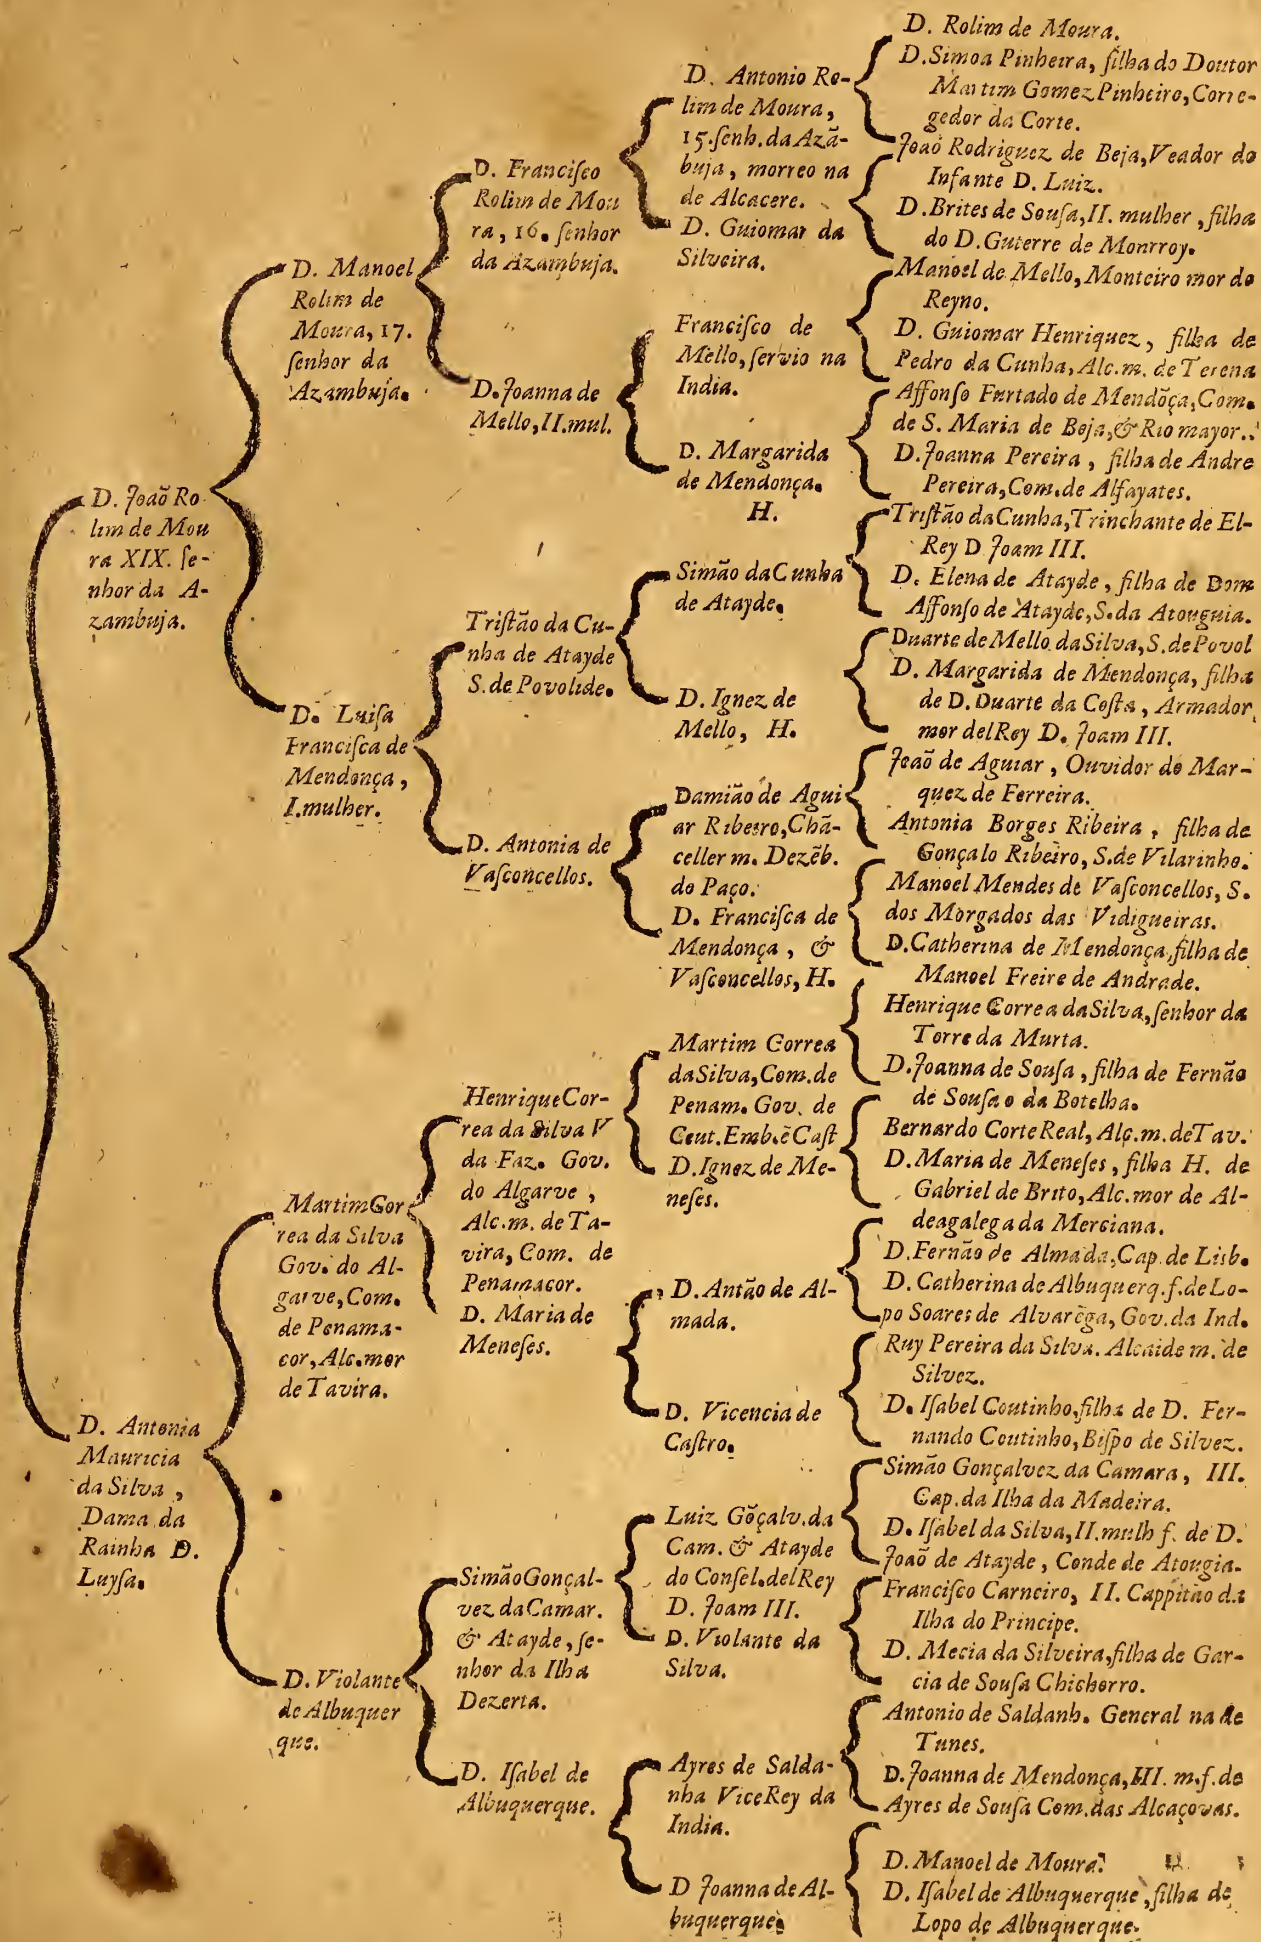 D. Joaõ Ro-
lim de Mou
ra XIX. ſe-
nhor da A-
zambuja.
D. Antonia
Mauricia
da Silva ,
Dama da
Rainha D.
Luyſa.
D. Manoel
Rolim de
Moura, 17.
ſenhor da
Azambuja.
D. Luiſa
Franciſca de
Mendonça ,
I.mulher.
Martim Cor
rea da Silva
Gov. do Al-
garve, Com.
de Penama-
cor, Alc.mor
de Tavira.
D. Violante
de Albuquer
que.
D. Franciſco
Rolim de Mou
ra, 16. ſenhor
da Azambuja.
D. Joanna de
Mello, II.mul.
Triſtão da Cu-
nha de Atayde
S. de Povolide.
D. Antonia de
Vaſconcellos.
Henrique Cor-
rea da Silva V
da Faz. Gov.
do Algarve ,
Alc.m. de Ta-
vira, Com. de
Penamacor.
D. Maria de
Meneſes.
Simão Gonçal-
vez da Camar.
& Atayde, ſe-
nhor da Ilha
Dezerta.
D. Iſabel de
Albuquerque.
D. Antonio Ro-
lim de Moura ,
15.ſenh. da Azã-
buja , morreo na
de Alcacere.
D. Guiomar da
Silveira.
Franciſco de
Mello, ſervio na
India.
D. Margarida
de Mendonça.
H.
Simão da Cunha
de Atayde.
D. Ignez de
Mello, H.
Damião de Agui
ar Ribeiro, Chã-
celler m. Dezẽb.
do Paço.
D. Franciſca de
Mendonça , &
Vaſconcellos, H.
Martim Correa
da Silva, Com. de
Penam. Gov. de
Ceut. Emb. ẽ Caſt
D. Ignez de Me-
neſes.
D. Antão de Al-
mada.
D. Vicencia de
Caſtro.
Luiz Gõçalv. da
Cam. & Atayde
do Conſel. delRey
D. Joam III.
D. Violante da
Silva.
Ayres de Salda-
nha ViceRey da
India.
D Joanna de Al-
buquerque.
D. Rolim de Moura.
D. Simoa Pinheira, filha do Doutor
Martim Gomez Pinheiro, Corre-
gedor da Corte.
Joaõ Rodriguez de Beja, Veador do
Infante D. Luiz.
D. Brites de Souſa, II. mulher , filha
do D. Guterre de Monrroy.
Manoel de Mello, Monteiro mor do
Reyno.
D. Guiomar Henriquez , filha de
Pedro da Cunha, Alc.m. de Terena
Affonſo Furtado de Mendõça, Com.
de S. Maria de Beja, & Rio mayor.
D. Joanna Pereira , filha de Andre
Pereira, Com. de Alfayates.
Triſtão da Cunha, Trinchante de El-
Rey D Joam III.
D. Elena de Atayde , filha de Dom
Affonſo de Atayde, S. da Atouguia.
Duarte de Mello da Silva, S. de Povol
D. Margarida de Mendonça, filha
de D. Duarte da Coſta , Armador
mor delRey D. Joam III.
Joaõ de Aguiar , Ouvidor do Mar-
quez de Ferreira.
Antonia Borges Ribeira , filha de
Gonçalo Ribeiro, S. de Vilarinho.
Manoel Mendes de Vaſconcellos, S.
dos Morgados das Vidigueiras.
D. Catherina de Mendonça, filha de
Manoel Freire de Andrade.
Henrique Correa da Silva, ſenhor da
Torre da Murta.
D. Joanna de Souſa , filha de Fernão
de Souſa o da Botelha.
Bernardo Corte Real, Alc.m. de Tav.
D. Maria de Meneſes , filha H. de
Gabriel de Brito, Alc.mor de Al-
deagalega da Merciana.
D. Fernão de Almada, Cap. de Lisb.
D. Catherina de Albuquerq. f. de Lo-
po Soares de Alvarẽga, Gov. da Ind.
Ruy Pereira da Silva. Alcaide m. de
Silvez.
D. Iſabel Coutinho, filha de D. Fer-
nando Coutinho, Biſpo de Silvez.
Simão Gonçalvez da Camara , III.
Cap. da Ilha da Madeira.
D. Iſabel da Silva, II.mulh f. de D.
Joaõ de Atayde , Conde de Atougia.
Franciſco Carneiro, II. Cappitão da
Ilha do Principe.
D. Mecia da Silveira, filha de Gar-
cia de Souſa Chichorro.
Antonio de Saldanh. General na de
Tunes.
D. Joanna de Mendonça, III. m.f. de
Ayres de Souſa Com. das Alcaçovas.
D. Manoel de Moura.
D. Iſabel de Albuquerque , filha de
Lopo de Albuquerque.